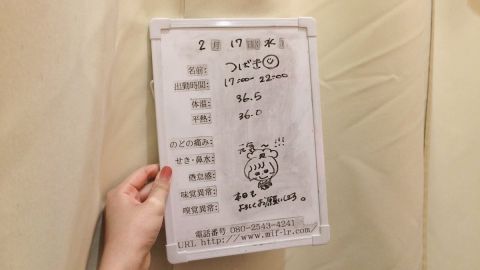 2月17日(水)
名前: つばき
出勤時間: 17:00~22:00
体温: 36.5
平熱: 36.0
のどの痛み:
せき・鼻水:
倦怠感:
味覚異常:
嗅覚異常:
元気～!!!
本日も
よろしくお願いします。
電話番号 080-2543-4241
URL http://www.mlf-lr.com/